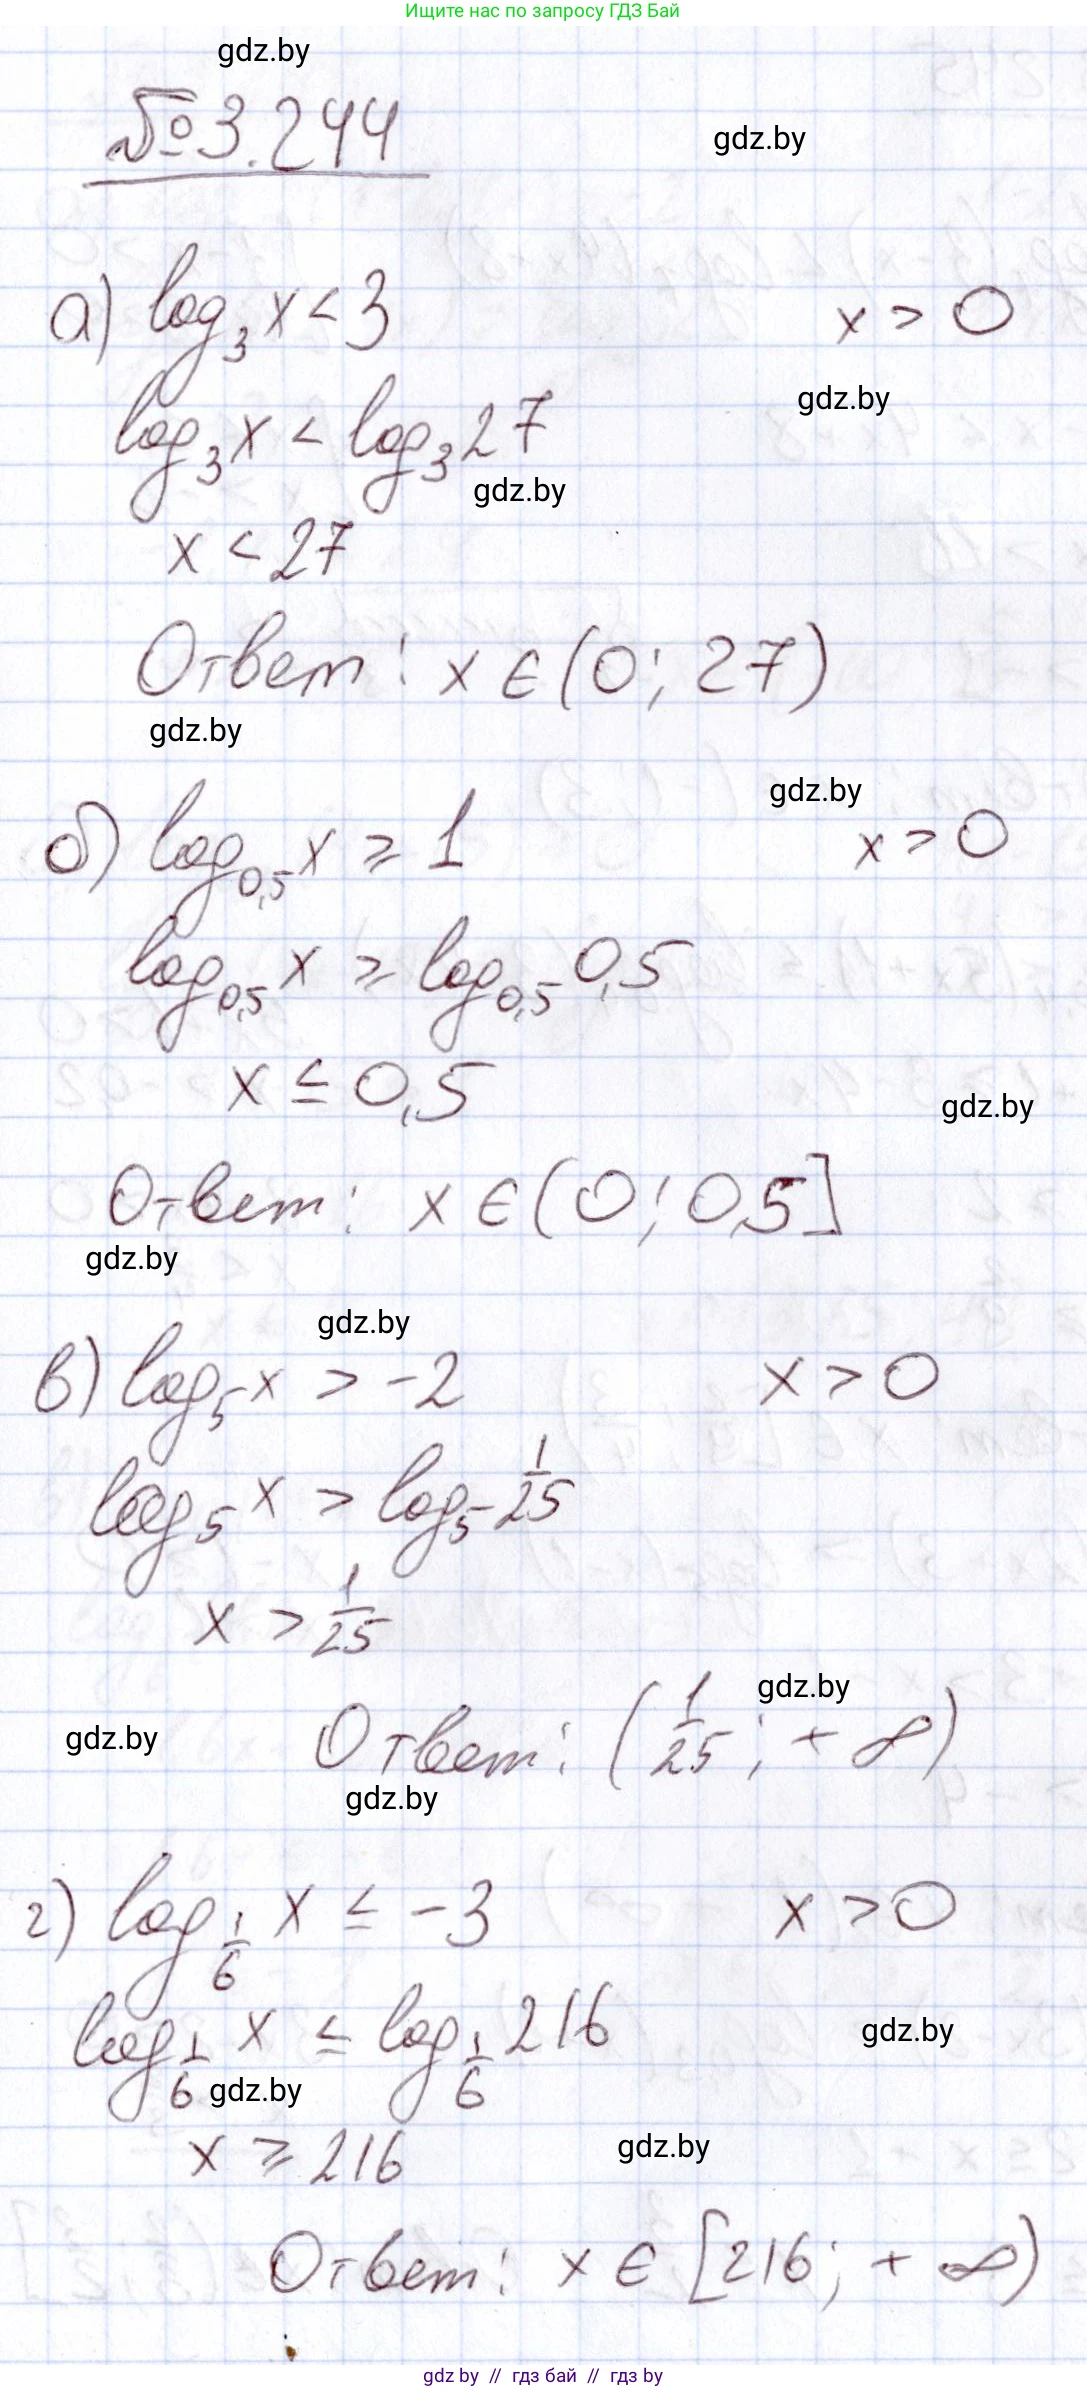 Ищите нас по запросу ГДЗ Бай
gdz.by
№3.244
gdz.by
а) log₃ x < 3 x > 0
gdz.by
log₃ x < log₃ 27
gdz.by
x < 27
Ответ: x ∈ (0; 27)
gdz.by
gdz.by
б) log₀,₅ x ⩾ 1 x > 0
log₀,₅ x ⩾ log₀,₅ 0,5
x ≤ 0,5
gdz.by
Ответ: x ∈ (0; 0,5]
gdz.by
gdz.by
в) log₅ x > -2 x > 0
log₅ x > log₅ 1/25
x > 1/25
gdz.by
Ответ: (1/25; + ∞)
gdz.by
gdz.by
г) log_{1/6} x ≤ -3 x > 0
log_{1/6} x ≤ log_{1/6} 216
gdz.by
gdz.by
x ⩾ 216
gdz.by
Ответ: x ∈ [216; + ∞)
gdz by // гдз бай // гдз by